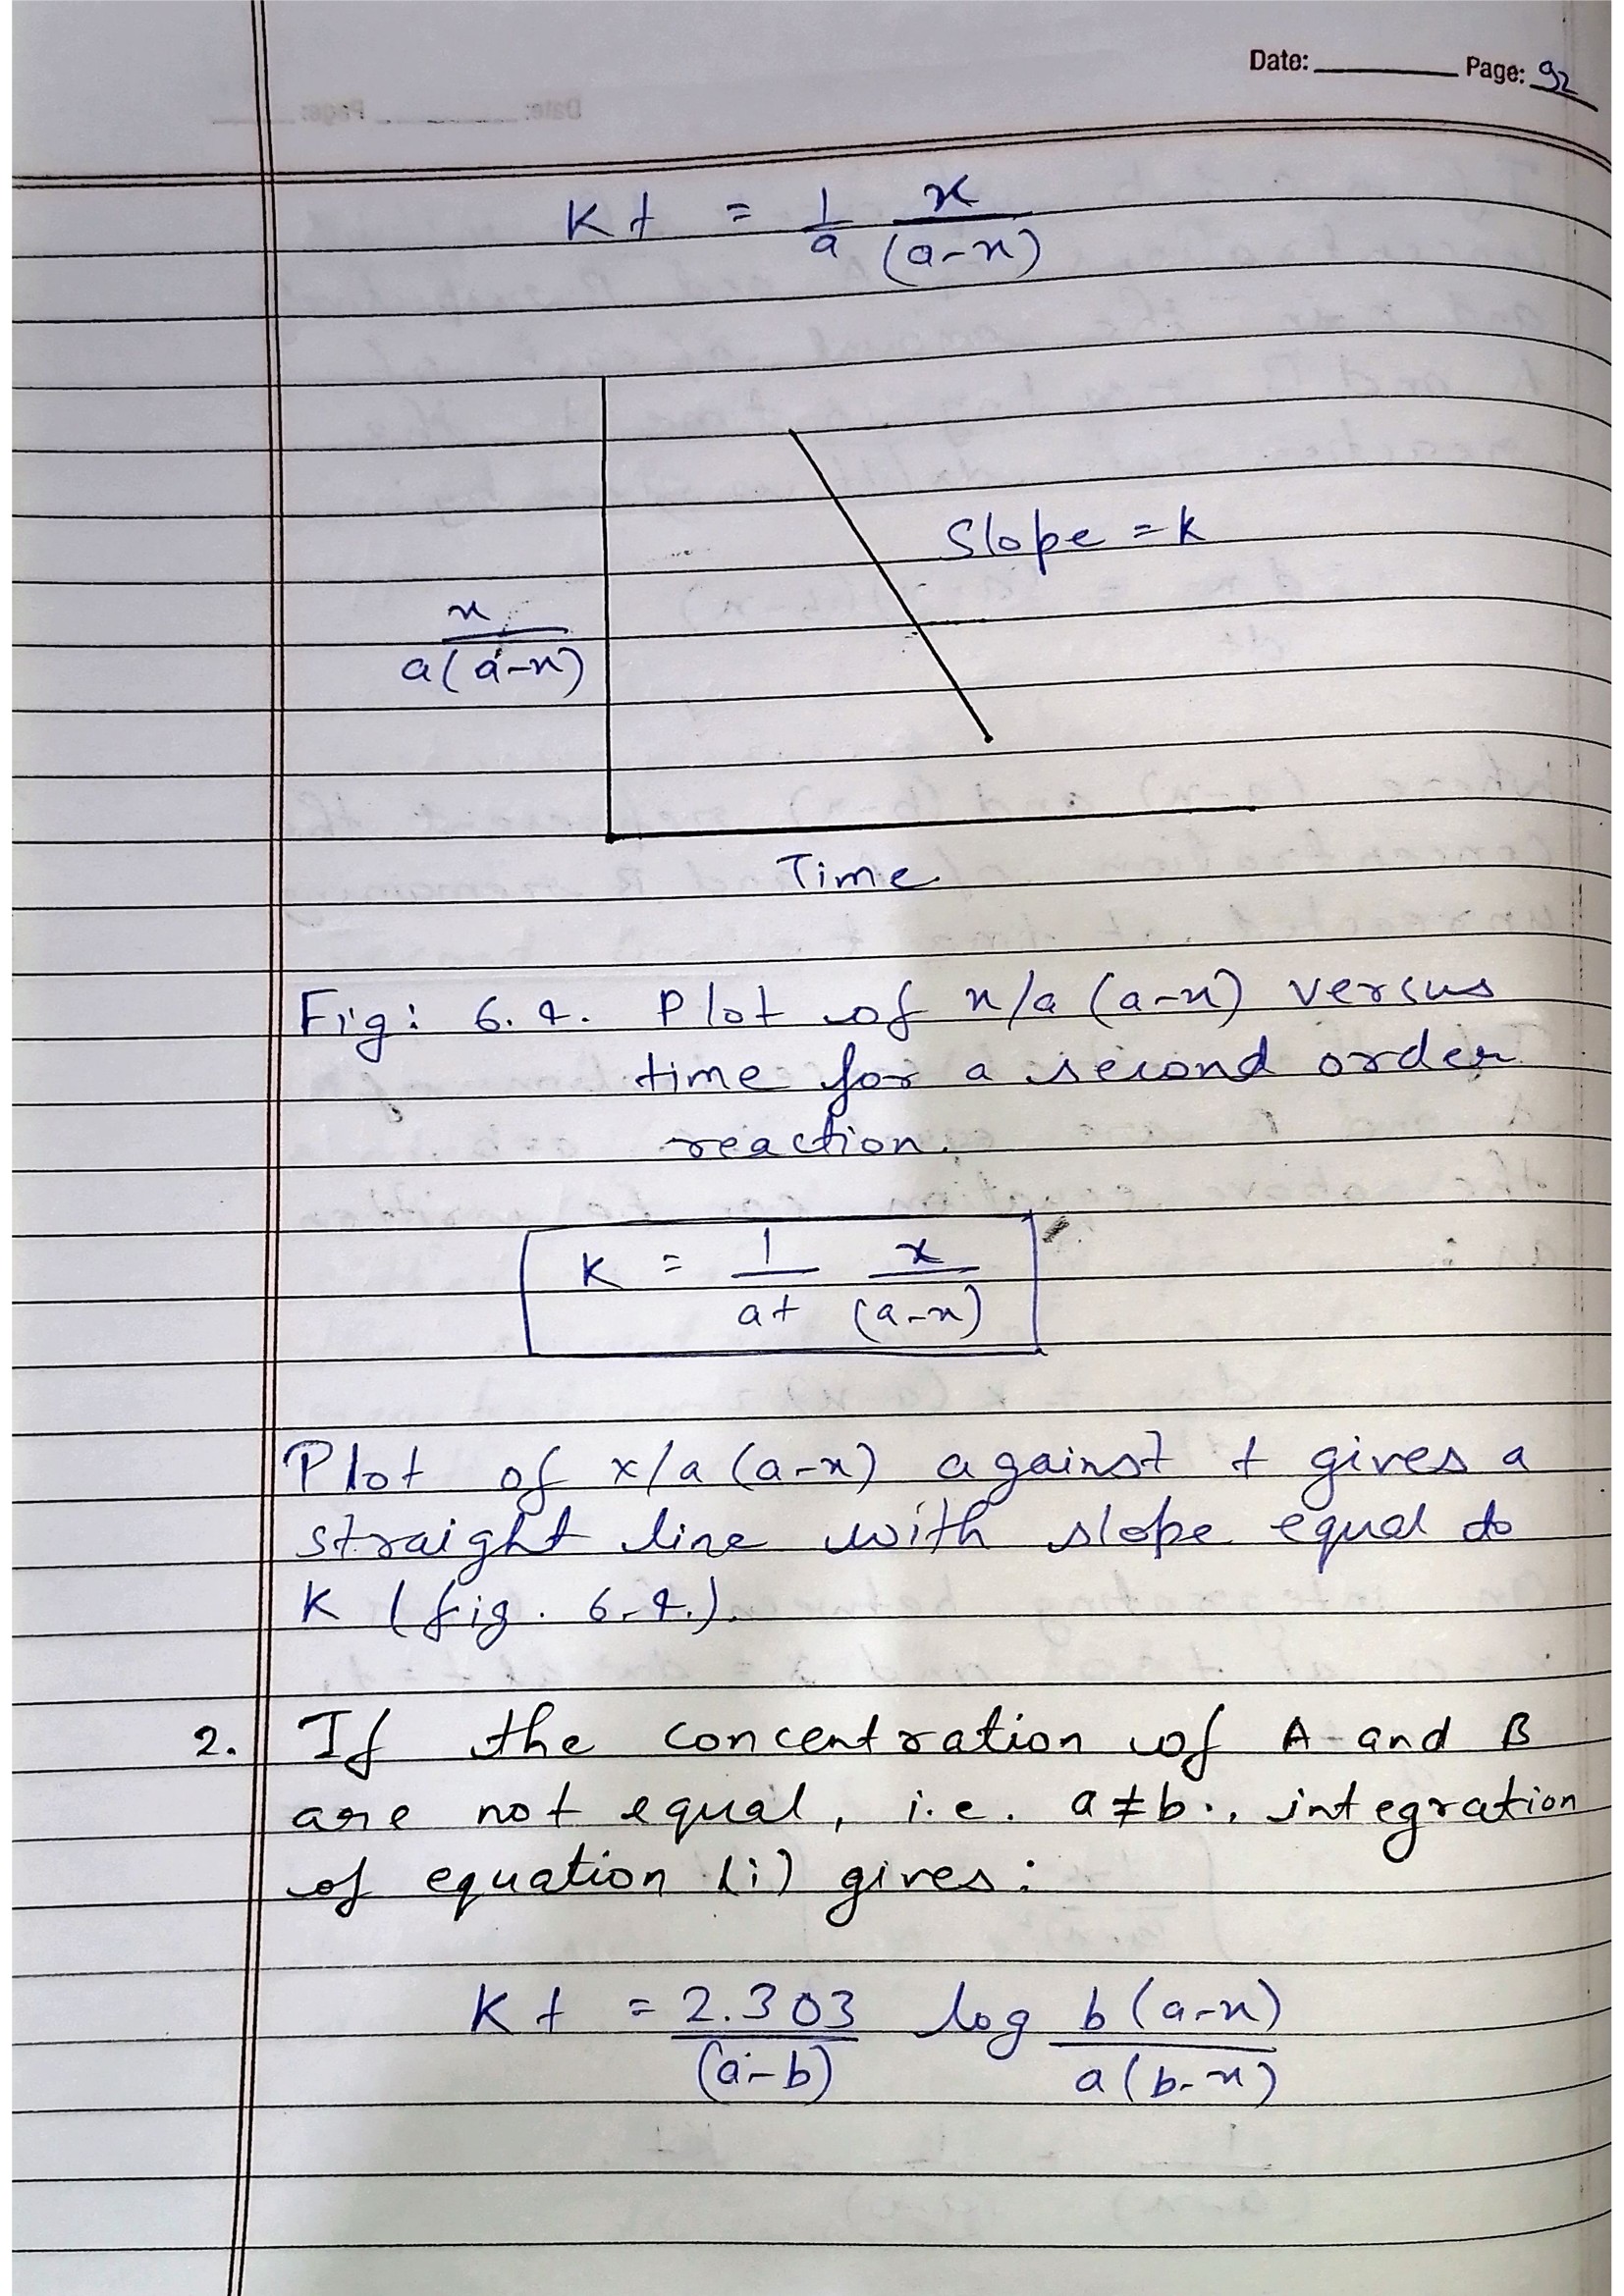 Date: Page: 92
Kt = 1/a x/(a-x)
Slope = k
x/a(a-x)
Time
Fig: 6.4. Plot of x/a (a-x) versus
time for a second order
reaction.
K = 1/at x/(a-x)
Plot of x/a (a-x) against t gives a
straight line with slope equal to
K (fig. 6.4.).
2. If the concentration of A and B
are not equal, i.e. a≠b., integration
of equation (i) gives:
Kt = 2.303/(a-b) log b(a-x)/a(b-x)